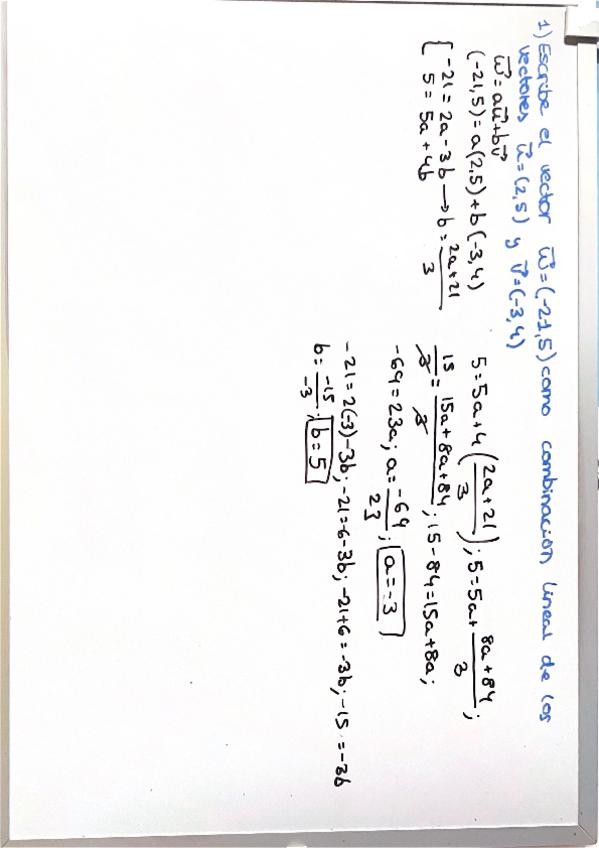 1) Escribe el vector w⃗=(-21,5) como combinación lineal de los
vectores u⃗=(2,5) y v⃗=(-3,4)
w⃗=au⃗+bv⃗
(-21,5)=a(2,5)+b(-3,4)
{ -21=2a-3b → b=(2a+21)/3
5=5a+4b
5=5a+4((2a+21)/3); 5=5a+(8a+84)/3;
15/3=(15a+8a+84)/3; 15-84=15a+8a;
-64=23a; a=-64/23; a=-3
-21=2(-3)-3b; -21=-6-3b; -21+6=-3b; -15=-3b
b=-15/-3; b=5